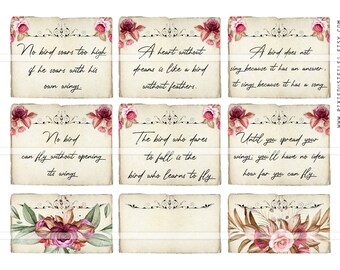 No bird soars too high
if he soars with his
own wings.
A heart without
dreams is like a bird
without feathers.
A bird does not
sing because it has an answer
it sings because it has a song.
No bird
can fly without opening
its wings
The bird who dares
to fall is the
bird who learns to fly
Until you spread your
wings, you'll have no idea
how far you can fly.